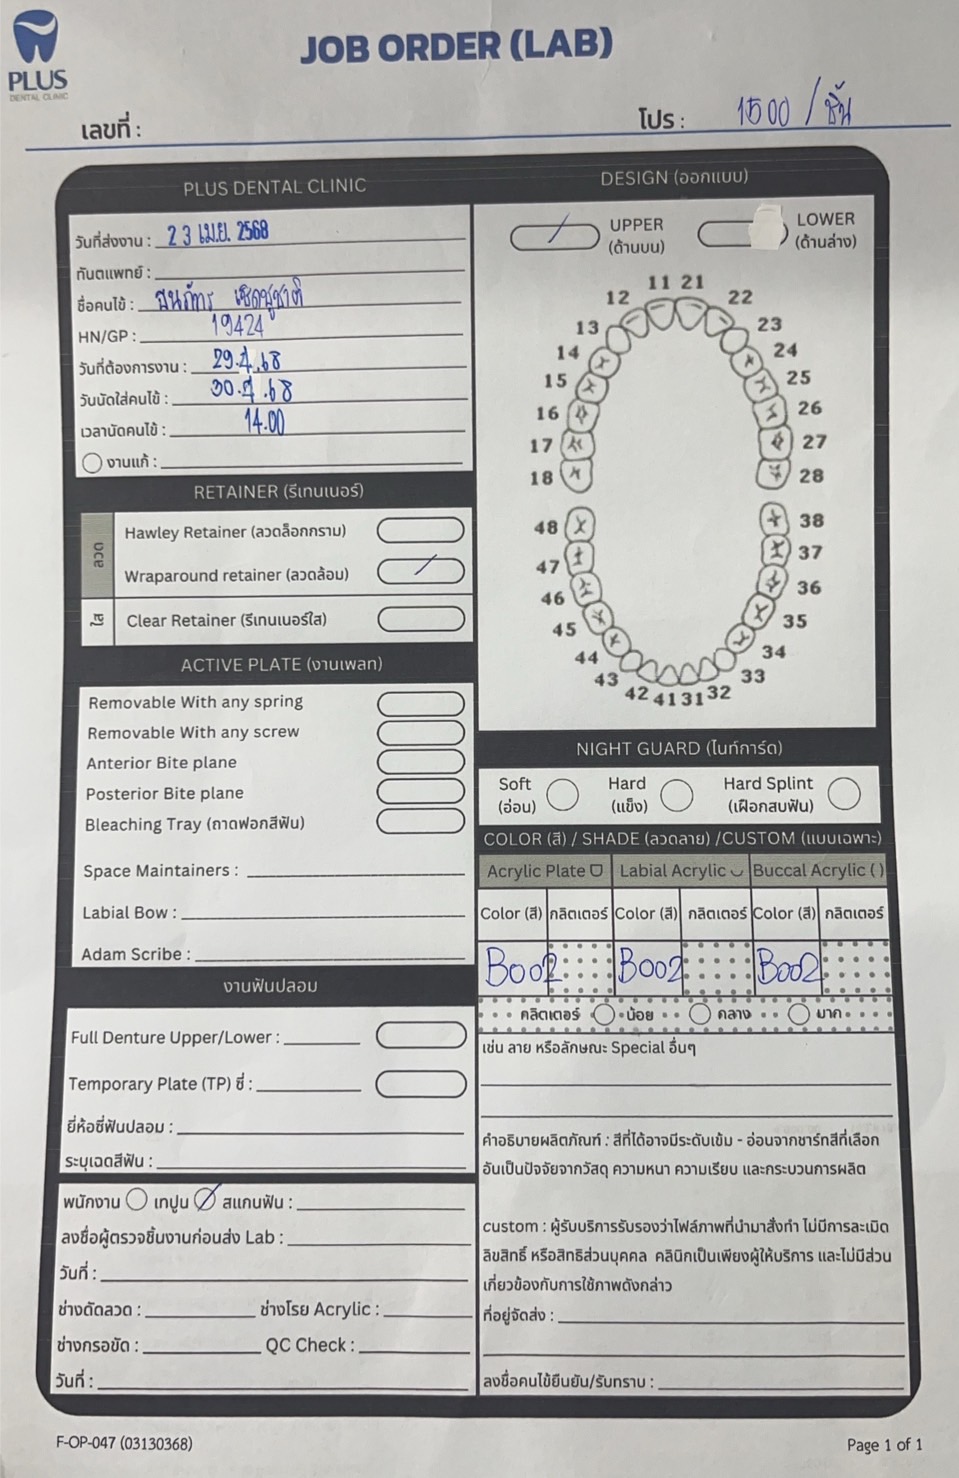 PLUS
DENTAL CLINIC
JOB ORDER (LAB)
เลขที่ :
โปร : 1500 / ชิ้น
PLUS DENTAL CLINIC
วันที่ส่งงาน : 23 เม.ย. 2568
ทันตแพทย์ :
ชื่อคนไข้ : เชิดชูชาติ
HN/GP : 19424
วันที่ต้องการงาน : 29.4.68
วันนัดใส่คนไข้ : 30.4.68
เวลานัดคนไข้ : 14.00
งานแก้ :
RETAINER (รีเทนเนอร์)
ลวด
Hawley Retainer (ลวดล็อกกราม)
Wraparound retainer (ลวดล้อม)
ใส
Clear Retainer (รีเทนเนอร์ใส)
ACTIVE PLATE (งานเพลท)
Removable With any spring
Removable With any screw
Anterior Bite plane
Posterior Bite plane
Bleaching Tray (ถาดฟอกสีฟัน)
Space Maintainers :
Labial Bow :
Adam Scribe :
งานฟันปลอม
Full Denture Upper/Lower :
Temporary Plate (TP) ซี่ :
ยี่ห้อซี่ฟันปลอม :
ระบุเฉดสีฟัน :
พนักงาน เทปูน สแกนฟัน :
ลงชื่อผู้ตรวจชิ้นงานก่อนส่ง Lab :
วันที่ :
ช่างดัดลวด : ช่างโรย Acrylic :
ช่างกรอขัด : QC Check :
วันที่ :
DESIGN (ออกแบบ)
UPPER
(ด้านบน)
LOWER
(ด้านล่าง)
11 21
12 22
13 23
14 24
15 25
16 26
17 27
18 28
48 38
47 37
46 36
45 35
44 34
43 33
42 41 31 32
NIGHT GUARD (ไนท์การ์ด)
Soft
(อ่อน)
Hard
(แข็ง)
Hard Splint
(เฝือกสบฟัน)
COLOR (สี) / SHADE (ลวดลาย) /CUSTOM (แบบเฉพาะ)
Acrylic Plate Labial Acrylic Buccal Acrylic ( )
Color (สี) กลิตเตอร์ Color (สี) กลิตเตอร์ Color (สี) กลิตเตอร์
B002 B002 B002
คลิตเตอร์ น้อย กลาง มาก
เช่น ลาย หรือลักษณะ Special อื่นๆ
คำอธิบายผลิตภัณฑ์ : สีที่ได้อาจมีระดับเข้ม - อ่อนจากชาร์ทสีที่เลือก
อันเป็นปัจจัยจากวัสดุ ความหนา ความเรียบ และกระบวนการผลิต
custom : ผู้รับบริการรับรองว่าไฟล์ภาพที่นำมาสั่งทำ ไม่มีการละเมิด
ลิขสิทธิ์ หรือสิทธิส่วนบุคคล คลินิกเป็นเพียงผู้ให้บริการ และไม่มีส่วน
เกี่ยวข้องกับการใช้ภาพดังกล่าว
ที่อยู่จัดส่ง :
ลงชื่อคนไข้ยืนยัน/รับทราบ :
F-OP-047 (03130368)
Page 1 of 1